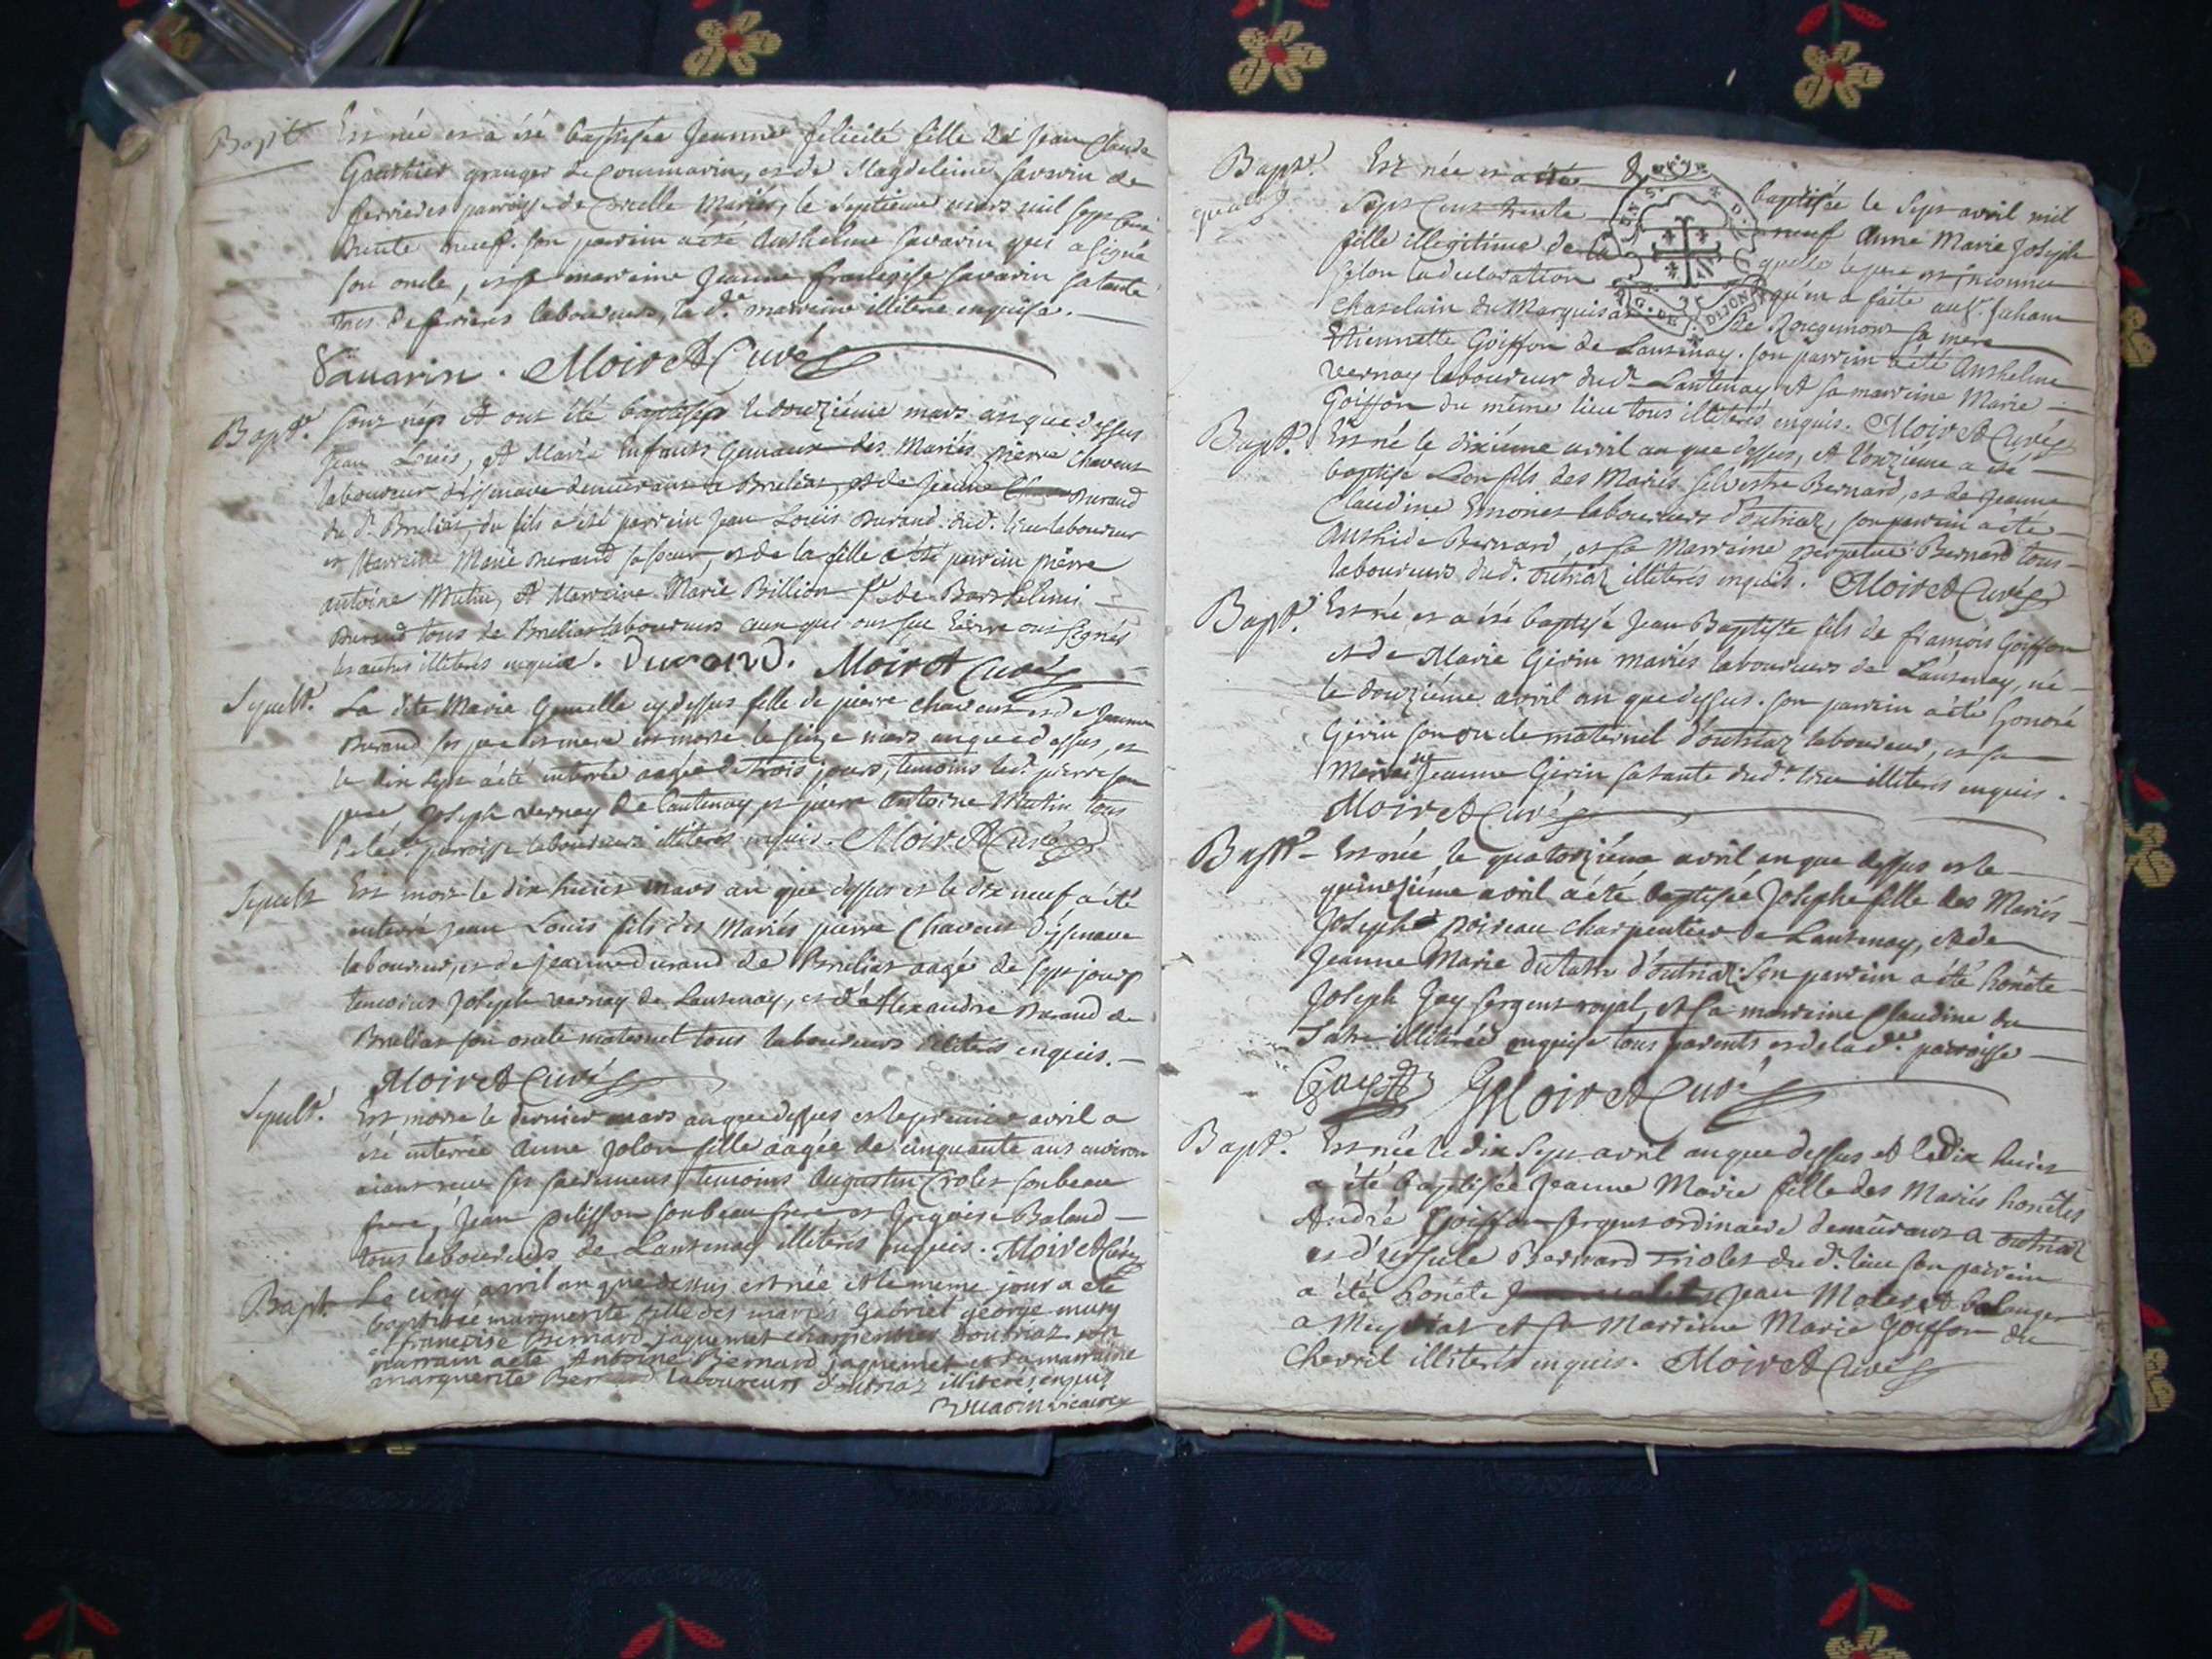 Bapt.
Est née et a été baptisée Jeanne felicité fille de Jean Claude
Gauthier granger de Coummarin, et de Magdeleine Savarin de
ferrieres parroisse de Corcelle Mariés, le Septieme mars mil sept cent
trente neuf. son parrain a été Anthelme Savarin qui a signé
son oncle, et sa marraine Jeanne françoise Savarin sa tante
tous de ferrieres laboureurs, la de. marraine illiterée enquise.
Savarin. Moiret Curé
Bapt.
sont néps et ont été baptisés le douziéme mars an que dessus
Jean Louis, et Marie Enfants Gemeaux des Mariés pierre Chavent
laboureur d'Isenave demeurant a Brulias, et de Jeanne Durand
du d. Brulias, du fils a été parrain Jean Louis Durand dud. lieu laboureur
et Marraine Marie Durand sa soeur, et de la fille a été parrain pierre
antoine Mutin, et Marraine Marie Billion fe. de Barthelemi
Durand tous de Brulias laboureurs ceux qui ont sçu Ecrire ont signés
les autres illiterés enquis. Durand. Moiret Curé
Sepult.
La dite Marie Gemelle cy dessus fille de pierre chavent et de Jeanne
Durand ses pere et mere est morte le seize mars an que dessus, et
le dix sept a été enterrée aagée de trois jours, temoins led. pierre son
pere, Joseph Vernay de Lantenay, et pierre antoine Mutin tous
de lad. parroisse laboureurs illiterés enquis. Moiret Curé
Sepult.
Est mort le dix huict mars an que dessus et le dix neuf a été
enterré Jean Louis fils des Mariés pierre Chavent d'issenave
laboureur, et de jeanne durand de Brulias aagé de sept jours
temoins Joseph vernay de Lantenay, et d'alexandre Durand de
Brulias son oncle maternel tous laboureurs illiterés enquis.
Moiret Curé
Sepult.
Est morte le dernier mars an que dessus et le premier avril a
été enterrée Anne Jolon fille aagée de cinquante ans environ
aiant receu ses sacremens, temoins Augustin Crolet son beau
frere, Jean pelisson son beau frere et Baland
tous laboureurs de Lantenay illiterés enquis. Moiret Curé
Bapt.
Le cinq avril an que dessus est née et le meme jour a eté
baptisée marguerite fille des mariés Gabriel george musy
et françoise Bernard jaquemet charpentier doutriaz son
parrain a eté Antoine Bernard jaquemet et sa marraine
marguerite Bernard laboureurs d'outriaz illiterés enquis
vicaire
Bapt.
Est née et a été baptisée le Sept avril mil
Sept Cent trente neuf Anne Marie Joseph
fille illegitime de laquelle le pere est inconnu
selon la declaration qu'en a faite au sr. Juhan
Chatelain du Marquisat de Rougemont sa mere
Etiennette Goiffon de Lantenay. son parrain a été Anthelme
Vernay laboureur dud. Lantenay et sa marraine Marie
Goiffon du même lieu tous illiterés enquis. Moiret Curé
Bapt.
Est né le dixiéme avril an que dessus, et l'onzieme a été
baptisé Leon fils des Mariés Silvestre Bernard, et de Jeanne
Claudine laboureurs d'outriaz, son parrain a été
Bernard, et sa Marraine perpetue Bernard tous
laboureurs dud. outriaz illiterés enquis. Moiret Curé
Bapt.
Est né et a été baptisé Jean Baptiste fils de francois Goiffon
et de Marie Gérin mariés laboureurs de Lantenay, né
le douziéme avril an que dessus. son parrain a été honoré
Gérin son oncle maternel d'outriaz laboureur, et sa
Marraine Jeanne Gérin sa tante dud. lieu illiterés enquis.
Moiret Curé
Bapt.
Est née le quatorziéme avril an que dessus et le
quinziéme avril a été baptisée Josephe fille des Mariés
Joseph poireau charpentier de Lantenay, et de
Jeanne Marie dutatre d'outriaz. Son parrain a été honête
Joseph Jay sergent royal, et sa marraine Claudine du
Tatre illiterée enquise tous parents et de lad. parroisse
Moiret Curé
Bapt.
Est née le dix sept avril an que dessus et le dix huict
a été baptisée Jeanne Marie fille des Mariés honêtes
André Goiffon sergent ordinaire demeurant a outriaz
et d'ursule Bernard Triolet dud. lieu son parrain
a été honête Jean Molet boulanger
a et sa Marraine Marie Goiffon du
Chevril illiterés enquis. Moiret Curé